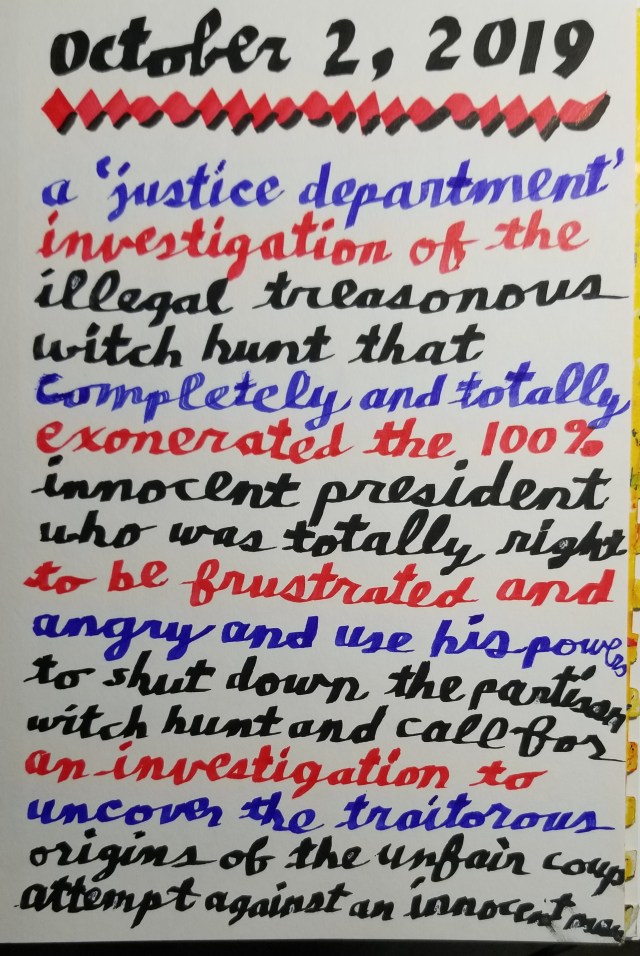 October 2, 2019
a 'justice department'
investigation of the
illegal treasonous
witch hunt that
completely and totally
exonerated the 100%
innocent president
who was totally right
to be frustrated and
angry and use his powers
to shut down the partisan
witch hunt and call for
an investigation to
uncover the traitorous
origins of the unfair coup
attempt against an innocent man